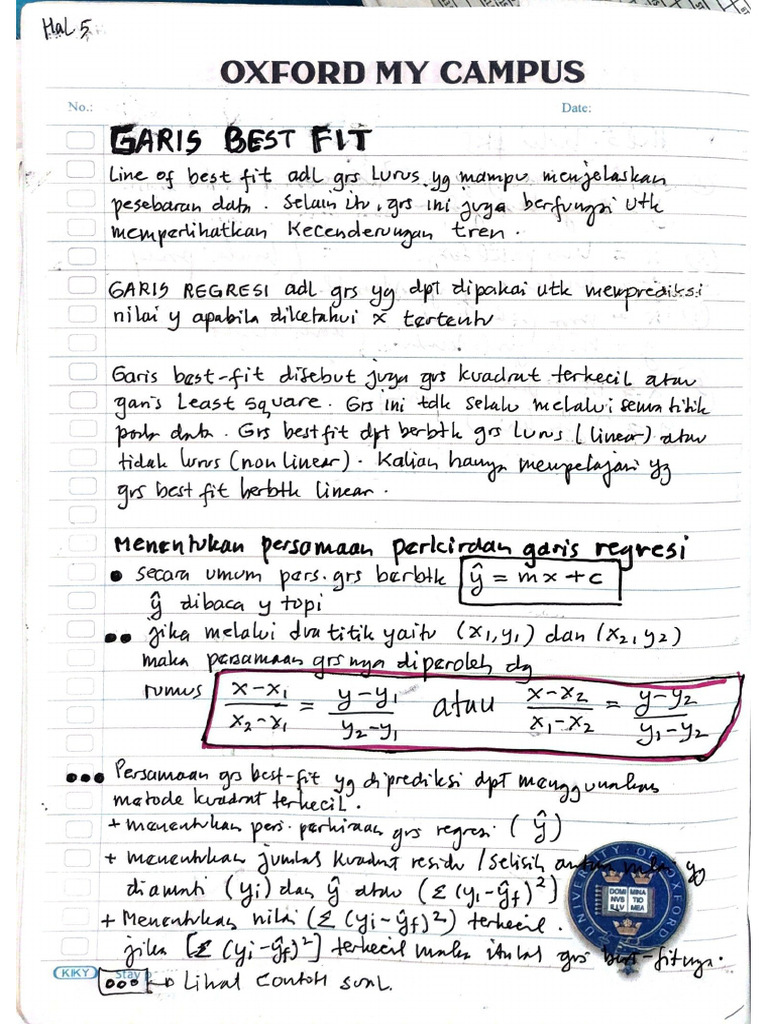 Hal 5
OXFORD MY CAMPUS
No.: Date:
GARIS BEST FIT
Line of best fit adl grs Lurus yg mampu menjelaskan
pesebaran data. Selain itu, grs ini juga berfungsi utk
memperlihatkan Kecenderungan tren.
GARIS REGRESI adl grs yg dpt dipakai utk memprediksi
nilai y apabila diketahui x tertentu
Garis best-fit disebut juga grs kuadrat terkecil atau
garis Least Square. Grs ini tdk selalu melalui semua titik
pada data. Grs best fit dpt berbtk grs Lurus (linear) atau
tidak lurus (non linear). Kalian hanya mempelajari yg
grs best fit berbtk linear.
Menentukan persamaan perkiraan garis regresi
• secara umum pers. grs berbtk ŷ = mx + c
ŷ dibaca y topi
•• jika melalui dua titik yaitu (x₁, y₁) dan (x₂, y₂)
maka persamaan grsnya diperoleh dg
rumus (x-x₁)/(x₂-x₁) = (y-y₁)/(y₂-y₁) atau (x-x₂)/(x₁-x₂) = (y-y₂)/(y₁-y₂)
••• Persamaan grs best-fit yg diprediksi dpt menggunakan
metode kuadrat terkecil.
+ menentukan pers. perkiraan grs regresi (ŷ)
+ menentukan jumlah kuadrat residu / selisih antara nilai yg
diamati (yi) dan ŷ atau (Σ (yi-ŷf)²)
+ Menentukan nilai (Σ (yi-ŷf)²) terkecil.
jika [Σ (yi-ŷf)²] terkecil maka itulah grs best-fitnya.
••• → Lihat contoh soal.
KIKY Stay
UNIVERSITY OF OXFORD
DOMI MINA
NVS TIO
ILLV MEA